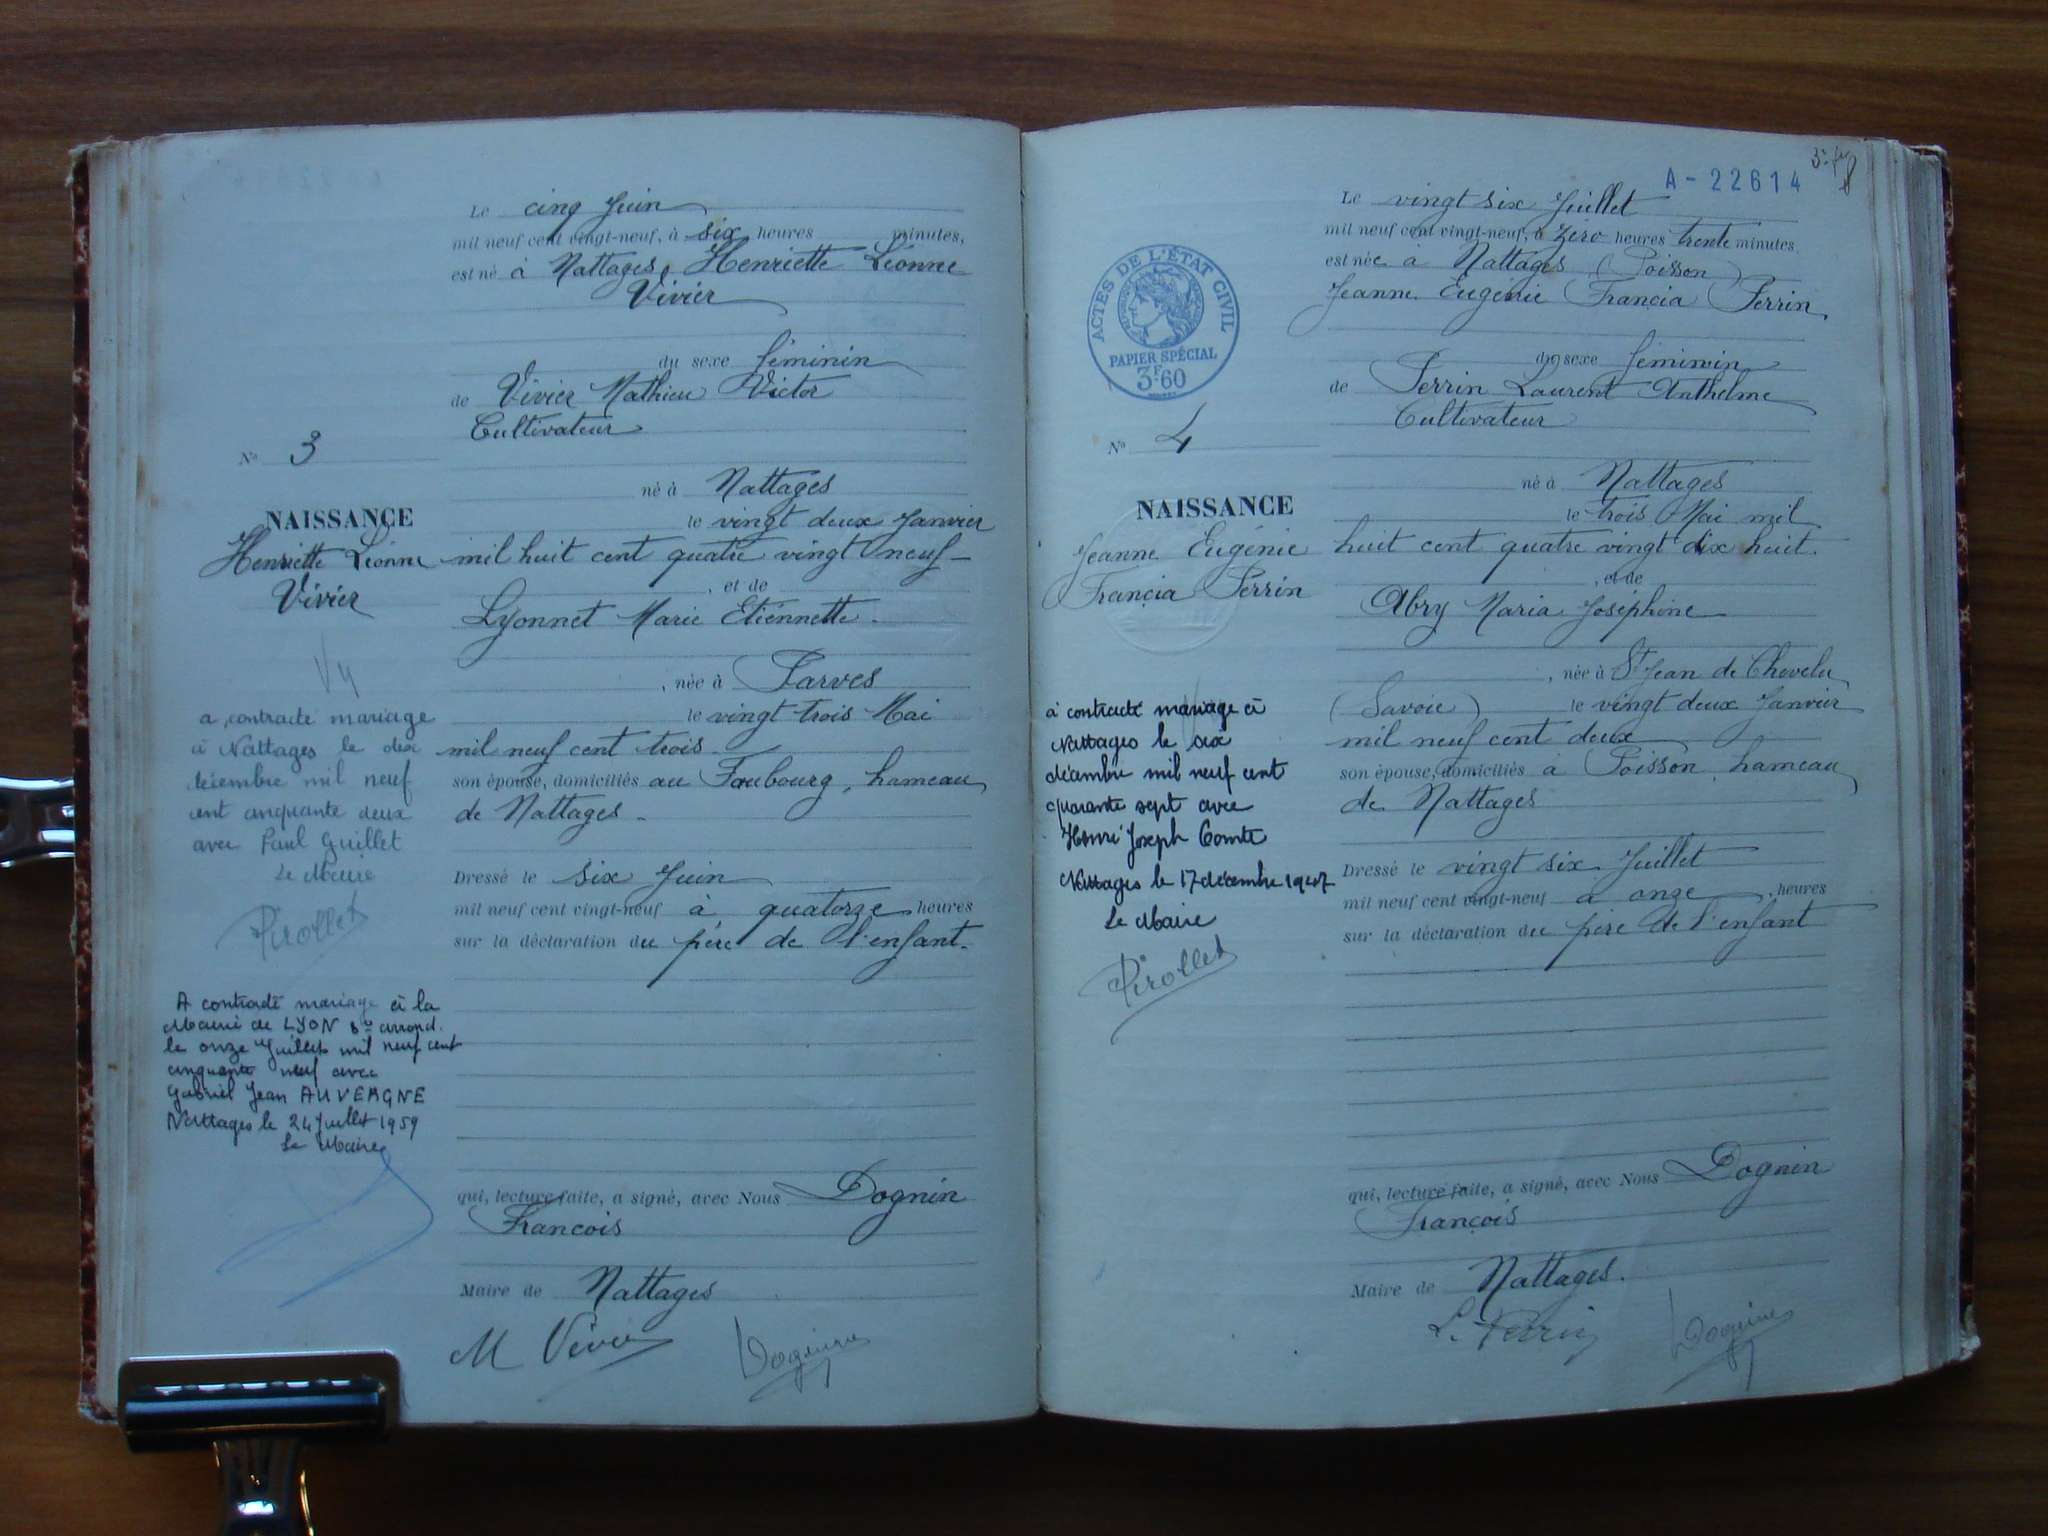 Le cinq Juin
mil neuf cent vingt-neuf, à six heures minutes,
est né à Nattages, Henriette Léonne
Vivier
du sexe féminin
de Vivier Mathieu Victor
Cultivateur
N° 3
né à Nattages
NAISSANCE
le vingt deux Janvier
Henriette Léonne
Vivier
mil huit cent quatre vingt neuf
, et de
Lyonnet Marie Etiennette.
, née à Parves
le vingt trois Mai
mil neuf cent trois
son épouse, domiciliés au Faubourg, hameau
de Nattages.
Dressé le six Juin
mil neuf cent vingt-neuf à quatorze heures
sur la déclaration du père de l'enfant.
qui, lecture faite, a signé, avec Nous Dognin
Francois
Maire de Nattages
M Vivier
Vu
a contracté mariage
à Nattages le dix
décembre mil neuf
cent cinquante deux
avec Paul Guillet
Le Maire
Pirollet
A contracté mariage à la
Mairie de LYON 8e arrond.
le onze Juillet mil neuf cent
cinquante neuf avec
Gabriel Jean AUVERGNE
Nattages le 24 Juillet 1959
Le Maire
A-22614
Le vingt six Juillet
mil neuf cent vingt-neuf, à zéro heures trente minutes,
est née à Nattages (Poisson)
Jeanne Eugénie Francia Perrin
ACTES DE L'ÉTAT CIVIL
PAPIER SPÉCIAL
3F.60
du sexe féminin
de Perrin Laurent Anthelme
Cultivateur
N° 4
né à Nattages
NAISSANCE
le trois Mai mil
Jeanne Eugénie
Francia Perrin
huit cent quatre vingt dix huit.
, et de
Abry Maria Joséphine
, née à St Jean de Chevelu
(Savoie) le vingt deux Janvier
mil neuf cent deux
son épouse, domiciliés à Poisson, hameau
de Nattages
Dressé le vingt six Juillet
mil neuf cent vingt-neuf à onze, heures
sur la déclaration du père de l'enfant
qui, lecture faite, a signé, avec Nous Dognin
François
Maire de Nattages.
L. Perrin
a contracté mariage à
Nattages le six
décembre mil neuf cent
quarante sept avec
Henri Joseph Comte
Nattages le 17 décembre 1947
Le Maire
Pirollet